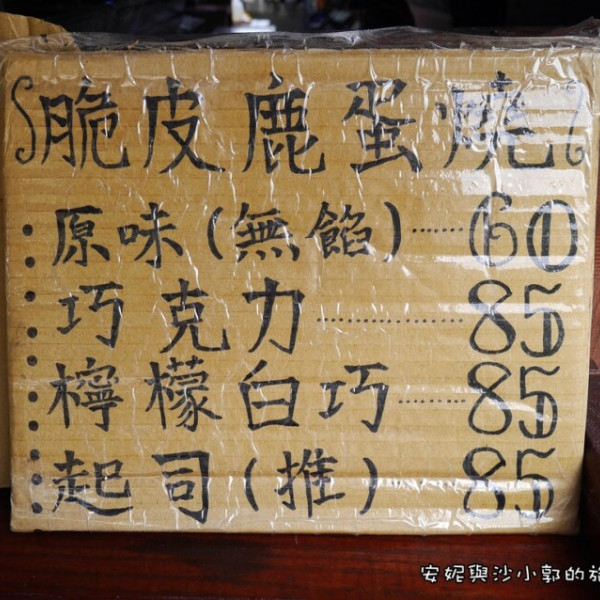 脆皮鹿蛋燒
原味(無餡)……60
巧克力…………85
檸檬白巧……85
起司(推) 85
安妮與沙小郭的旅